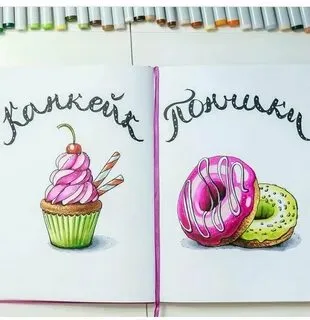 Капкейк
Пончики